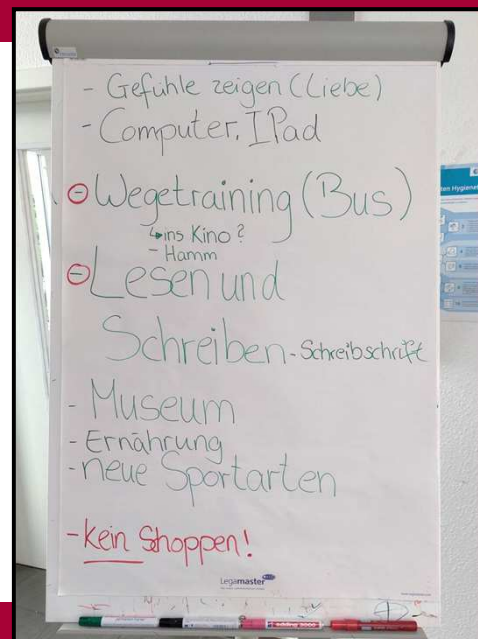 - Gefühle zeigen (Liebe)
- Computer, IPad
- Wegetraining (Bus)
↳ ins Kino?
- Hamm
- Lesen und
Schreiben - Schreibschrift
- Museum
- Ernährung
- neue Sportarten
- kein Shoppen!
Legamaster
edding 3000